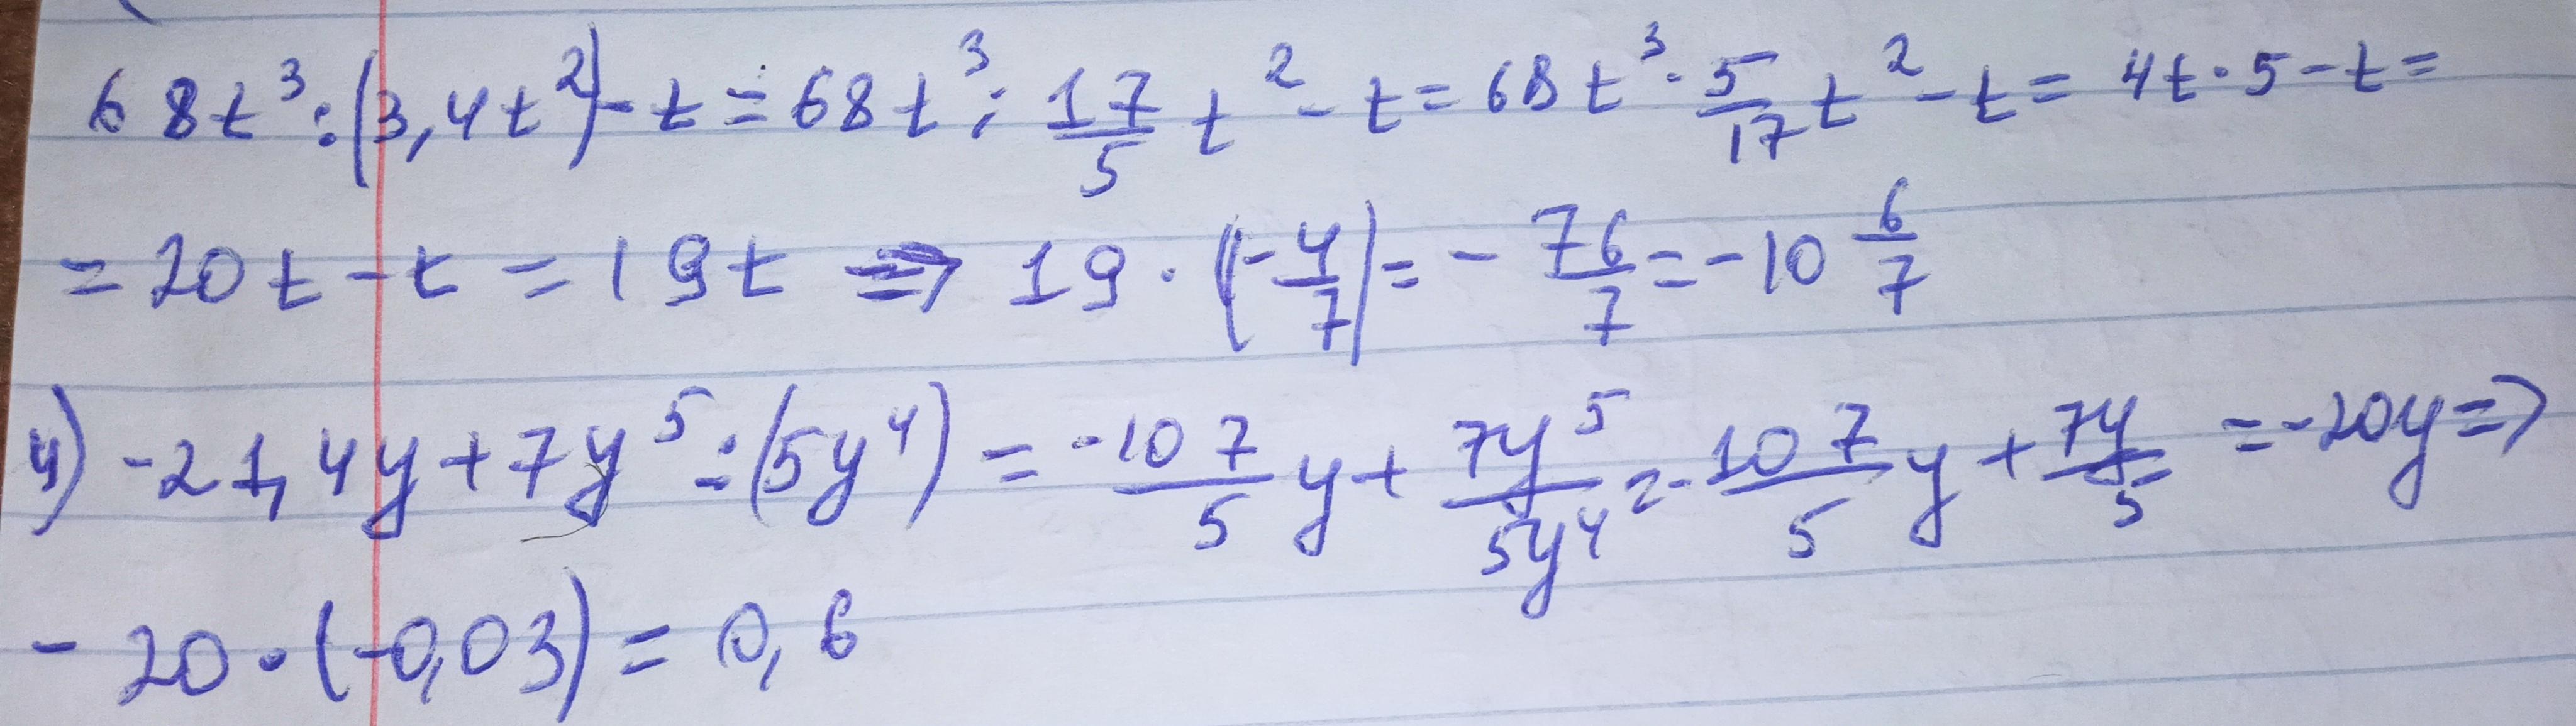 68t³:(3,4t²)-t=68t³:17/5 t²-t=68t³·5/17 t²-t=4t·5-t=
=20t-t=19t⇒19·(-4/7)=-76/7=-10 6/7
4) -21,4y+7y⁵:(5y⁴)=-107/5 y+7y⁵/5y⁴=-107/5 y+7y/5=-20y=>
-20·(-0,03)=0,6